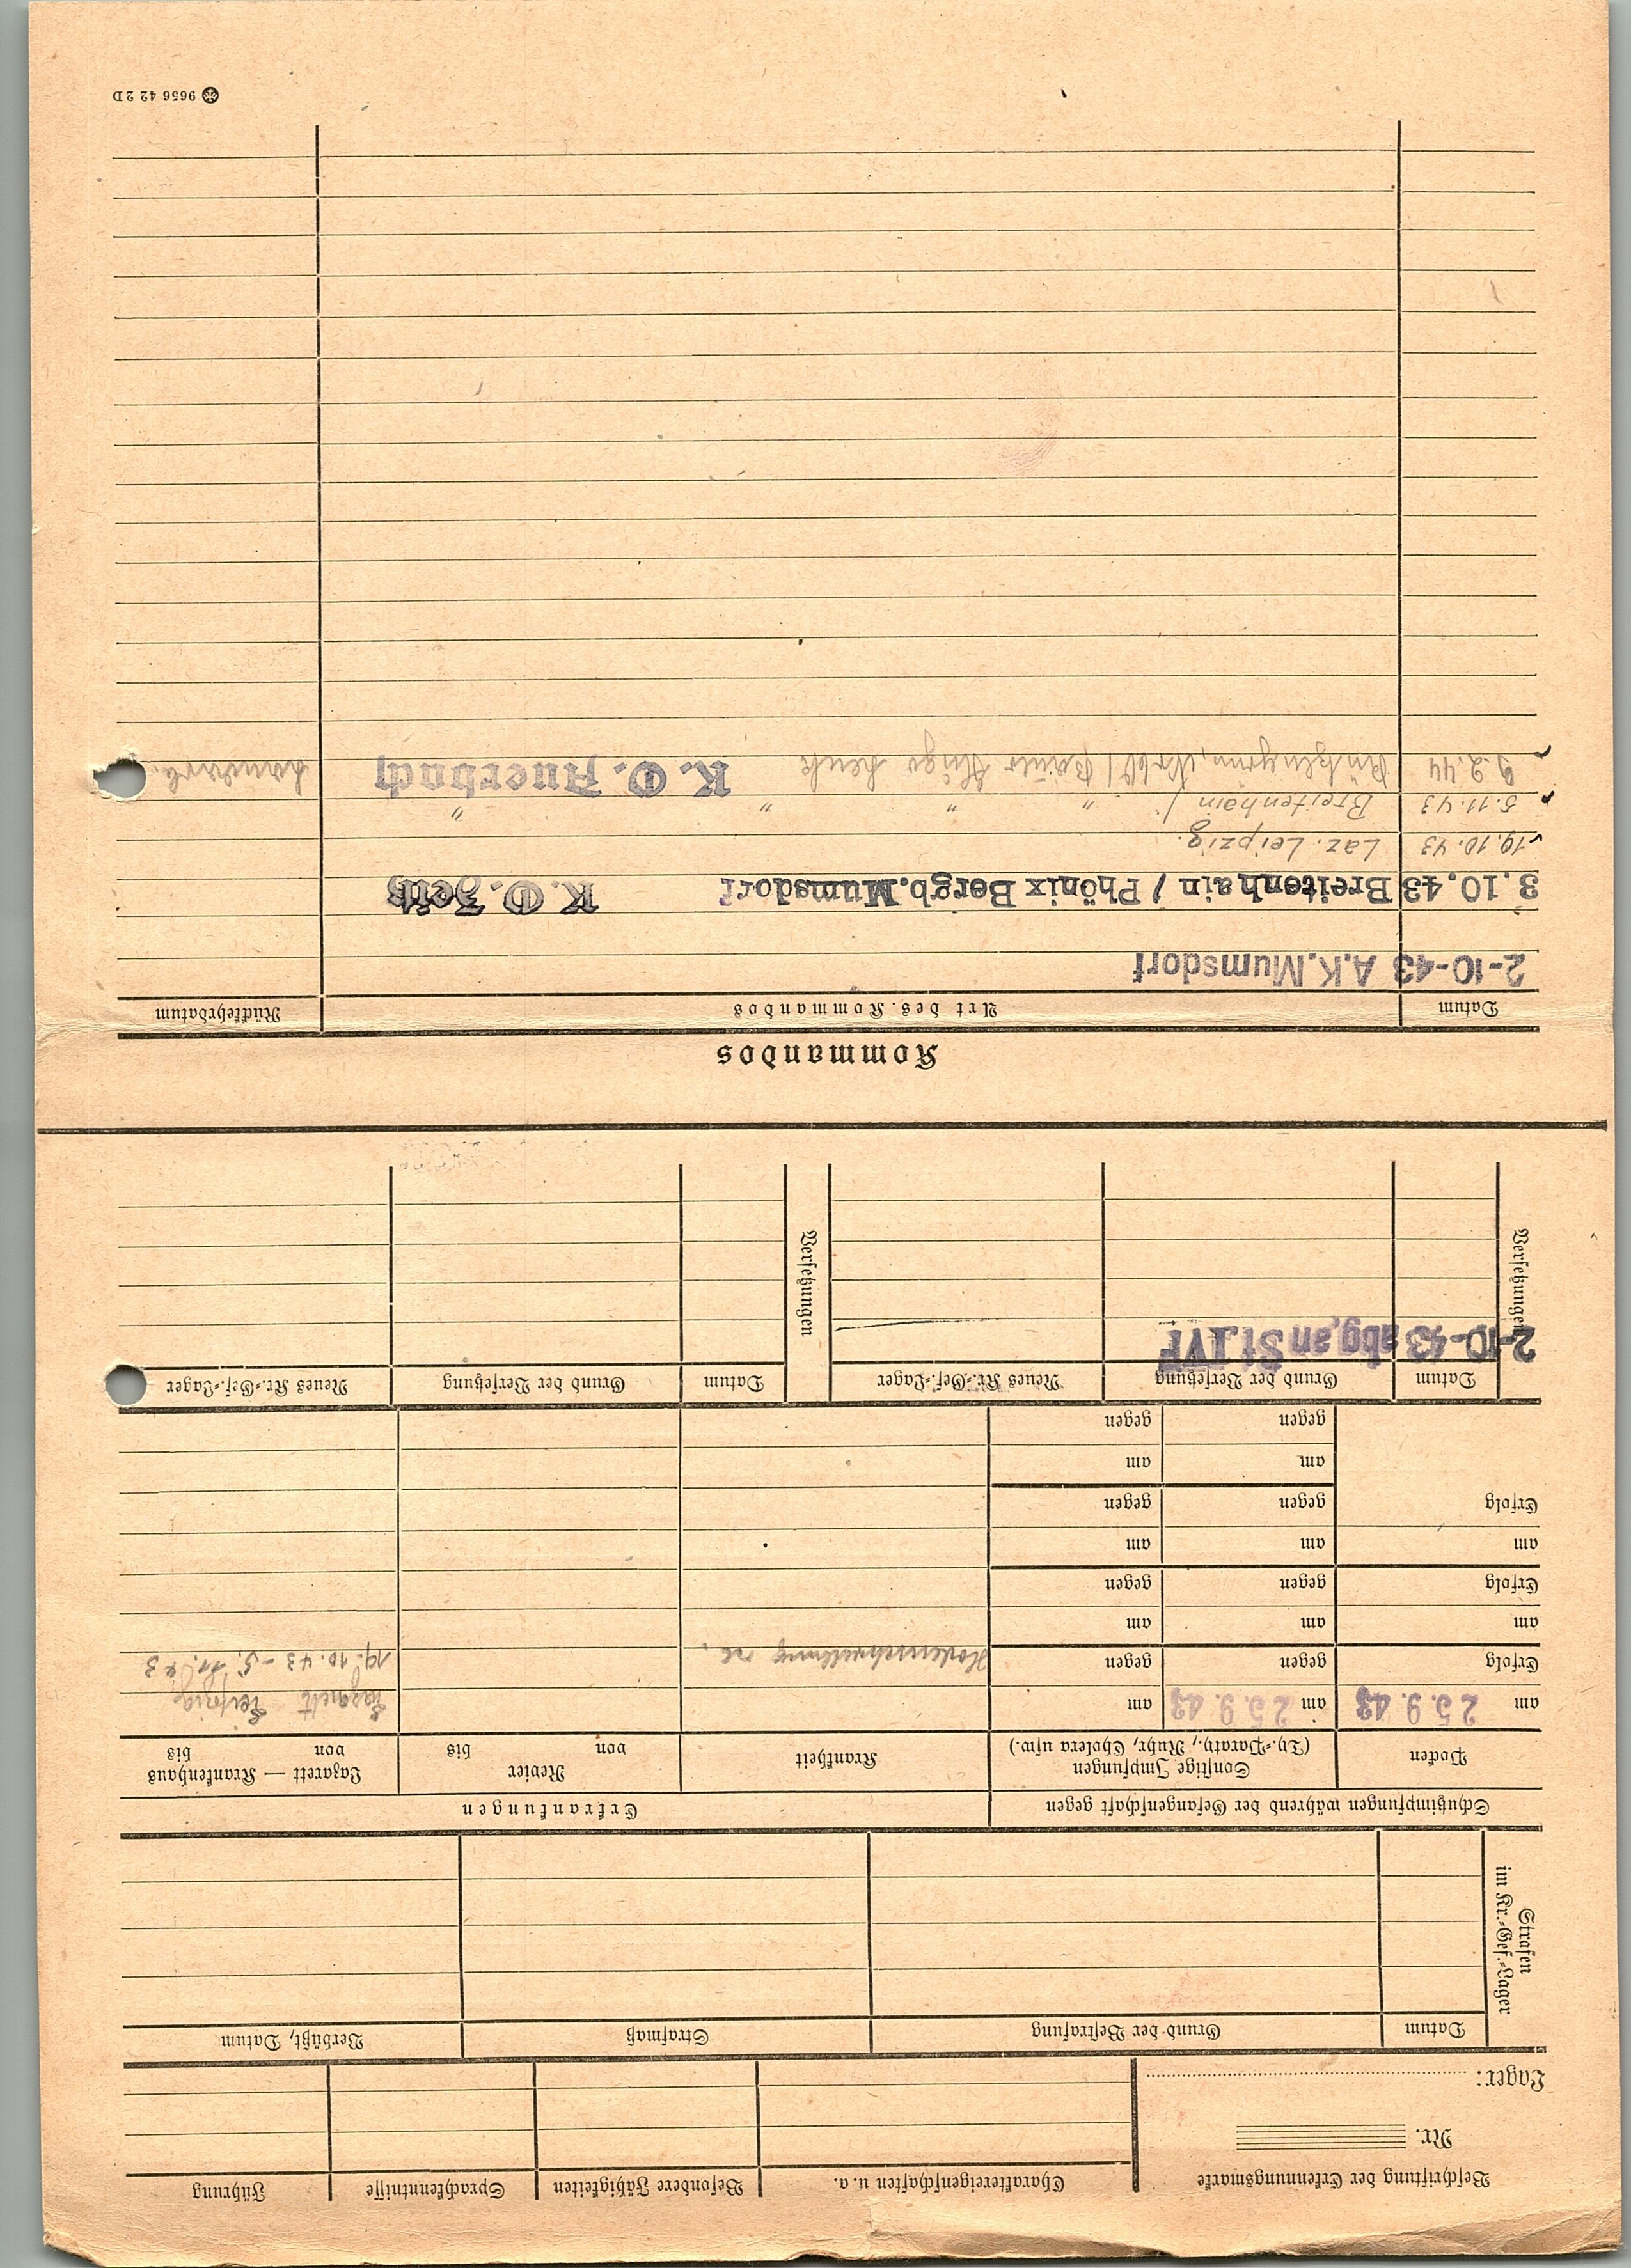 Beschriftung der Erkennungsmarke
Nr.
Lager:
Charaktereigenschaften u. a.
Besondere Fähigkeiten
Sprachkenntnisse
Führung
Strafen
im Kr.-Gef.-Lager
Datum
Grund der Bestrafung
Strafmaß
Verbüßt, Datum
Schutzimpfungen während der Gefangenschaft gegen
Erkrankungen
Pocken
Sonstige Impfungen
(Ty.-Paraty., Ruhr, Cholera usw.)
Krankheit
Revier
von bis
Lazarett — Krankenhaus
von bis
am 25. 9. 43
am 25. 9. 43
am
Lazarett Leipzig
Erfolg
gegen
gegen
Hodenschwellung re.
19. 10. 43 – 5. 11. 43
am
am
am
Erfolg
gegen
gegen
am
am
am
Erfolg
gegen
gegen
am
am
gegen
gegen
Versetzungen
Datum
Grund der Versetzung
Neues Kr.-Gef.-Lager
Versetzungen
Datum
Grund der Versetzung
Neues Kr.-Gef.-Lager
2-10-43 abg. an St IVF
Kommandos
Datum
Art des Kommandos
Rückkehrdatum
2-10-43 A.K. Mumsdorf
3.10.43 Breitenhain / Phönix Bergb. Mumsdorf K. O. Zeitz
19.10.43 Laz. Leipzig.
5.11.43 Breitenhain / " " " "
9.2.44 Hugo K. O. Auerbach
9656 42 2 D